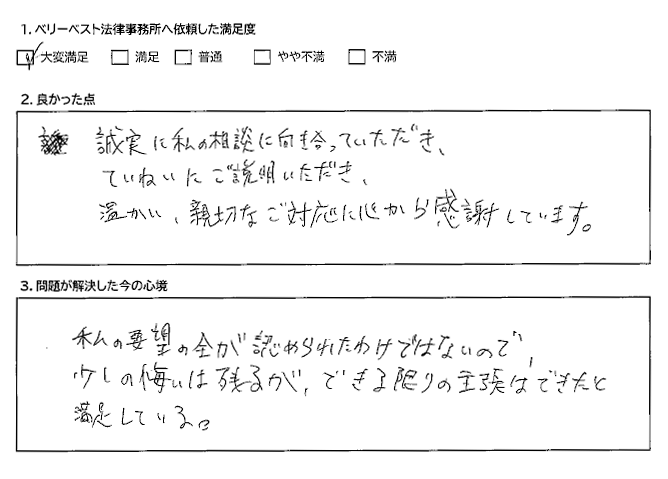 1. ベリーベスト法律事務所へ依頼した満足度
大変満足 満足 普通 やや不満 不満
2. 良かった点
誠実に私の相談に向き合っていただき、
ていねいにご説明いただき、
温かい、親切なご対応に心から感謝しています。
3. 問題が解決した今の心境
私の要望の全が認められたわけではないので、
少しの悔いは残るが、できる限りの主張はできたと
満足している。